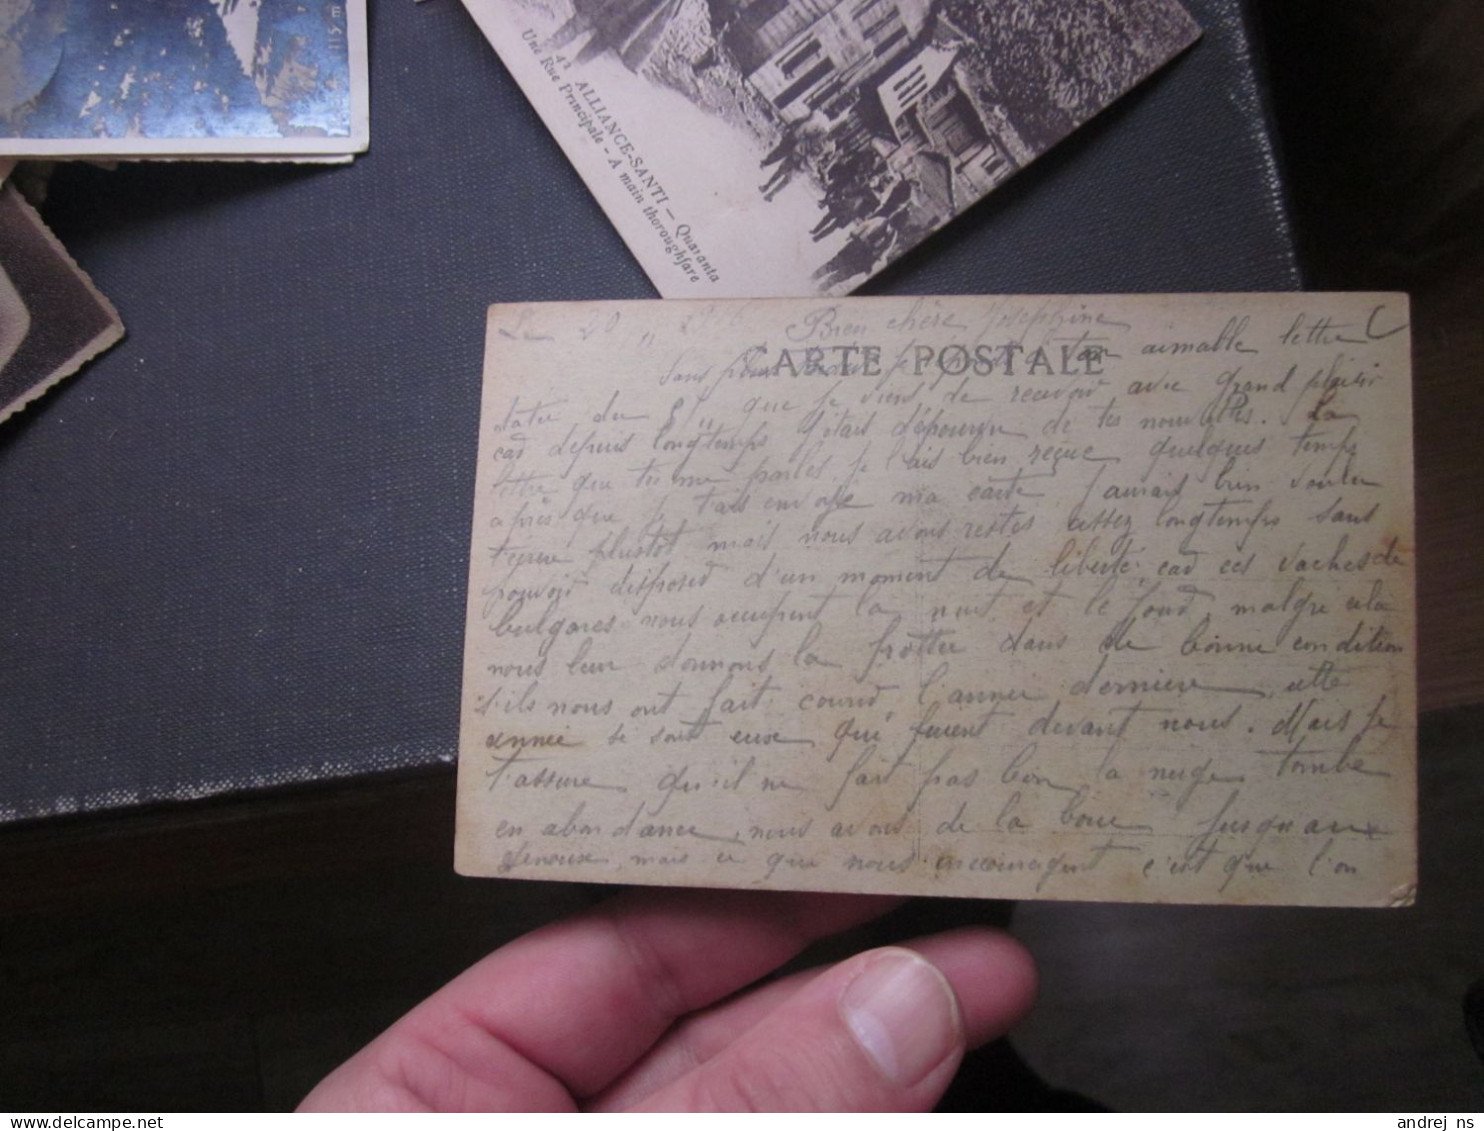 42 ALLIANCE-SANTI — Quaranta
Une Rue Principale - A main thoroughfare
Le 20 " 1916
Bien chère Josephine
CARTE POSTALE
Sans plus tarder je réponds à ton aimable lettre
datée du que je viens de recevoir avec grand plaisir
car depuis longtemps j'étais dépourvu de tes nouvelles. La
lettre que tu me parles je l'ais bien reçue quelques temps
après que je t'ais envoyé ma carte J'aurais bien voulu
plustôt mais nous avons restés assez longtemps sans
pouvoir disposer d'un moment de liberté, car ces vaches de
bulgares nous occupent la nuit et le jour, malgré cela
nous leur donnons la frottée dans de bonne condition
s'ils nous ont fait courir l'année dernière, cette
année se sont eux qui fuient devant nous. Mais je
t'assure qu'il ne fait pas bon, la neige tombe
en abondance, nous avons de la boue jusqu'aux
genoux, mais ce que nous encouragent c'est que l'on
andrej ns